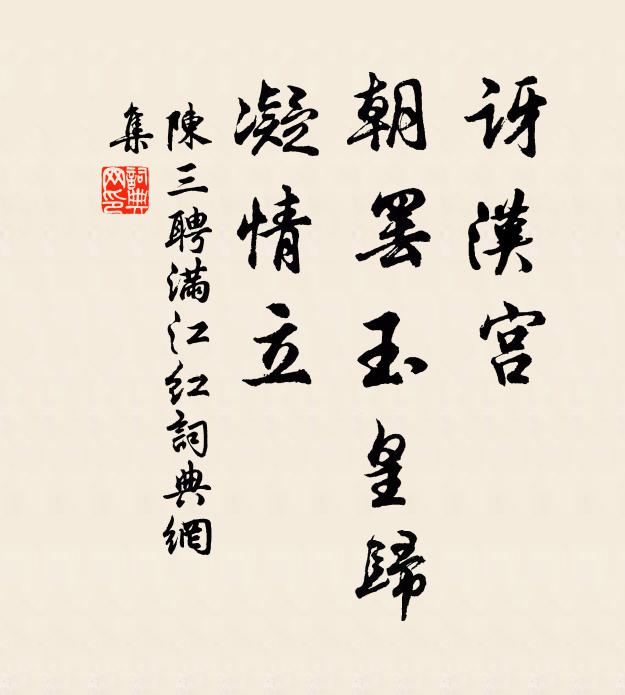 訝漢宮
朝罷玉皇歸
凝情立
陳三聘滿江紅詞典網
集
詞典网印